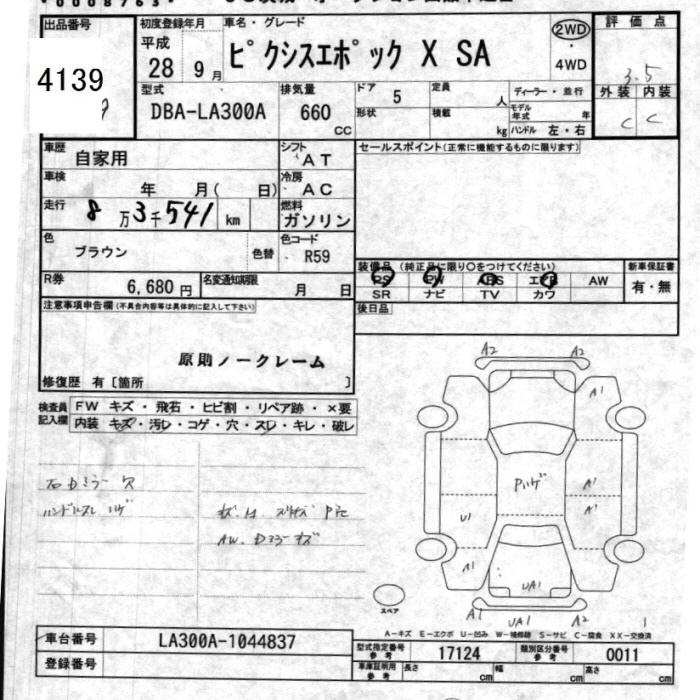 出品番号
4139
初度登録年月
平成
28年9月
車名・グレード
ピクシスエポック X SA
2WD
・
4WD
評価点
3.5
外装 内装
C C
型式
DBA-LA300A
排気量
660
CC
ドア
5
定員
人
ディーラー・並行
形状
積載
kg
モデル年式 年
ハンドル 左・右
車歴
自家用
シフト
AT
セールスポイント(正常に機能するものに限ります)
車検
年 月( 日)
冷房
AC
走行
8万3千541 km
燃料
ガソリン
色
ブラウン
色替
色コード
R59
装備品 (純正品に限り○をつけてください)
新車保証書
PS PW ABS エアB AW
有・無
SR ナビ TV カワ
R券
6,680 円
名変通知期限
月 日
後日品
注意事項申告欄(不具合内容等は具体的に記入して下さい)
原則ノークレーム
修復歴 有〔箇所 〕
検査員記入欄
FW キズ・飛石・ヒビ割・リペア跡・×要
内装 キズ・汚レ・コゲ・穴・スレ・キレ・破レ
右Dミラー穴
ハンドルスレ ハゲ
AW. Dミラーキズ
A2 A2
A1
Pハゲ
A1
A1
U1
A1
UA1
A1 UA1 A2
スペア
A-キズ E-エクボ U-凹み W-補修跡 S-サビ C-腐食 XX-交換済
車台番号
LA300A-1044837
登録番号
型式指定番号 参考
17124
類別区分番号 参考
0011
車庫証明用 参考
長さ cm
幅 cm
高さ cm